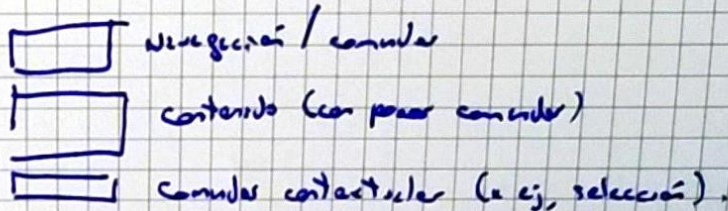 Navegación / comandos
contenido (con pocos comandos)
comandos contextuales (p. ej., selección).